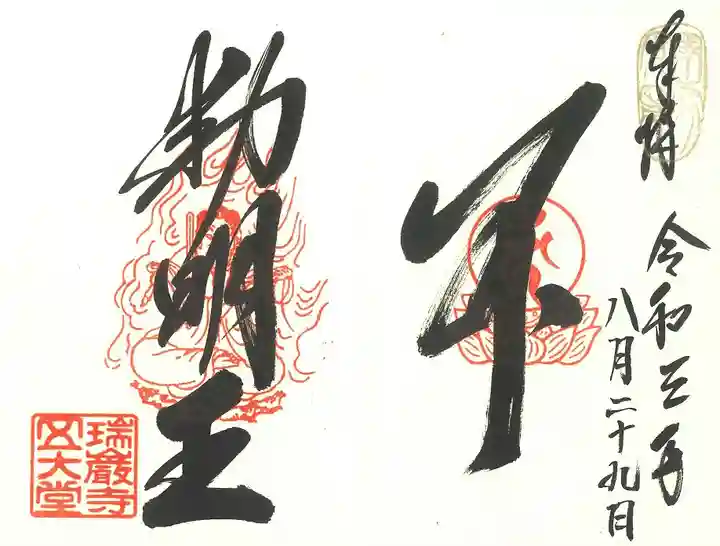 奉拝
令和三年
八月二十九日
不
動明王
瑞巌寺
五大堂